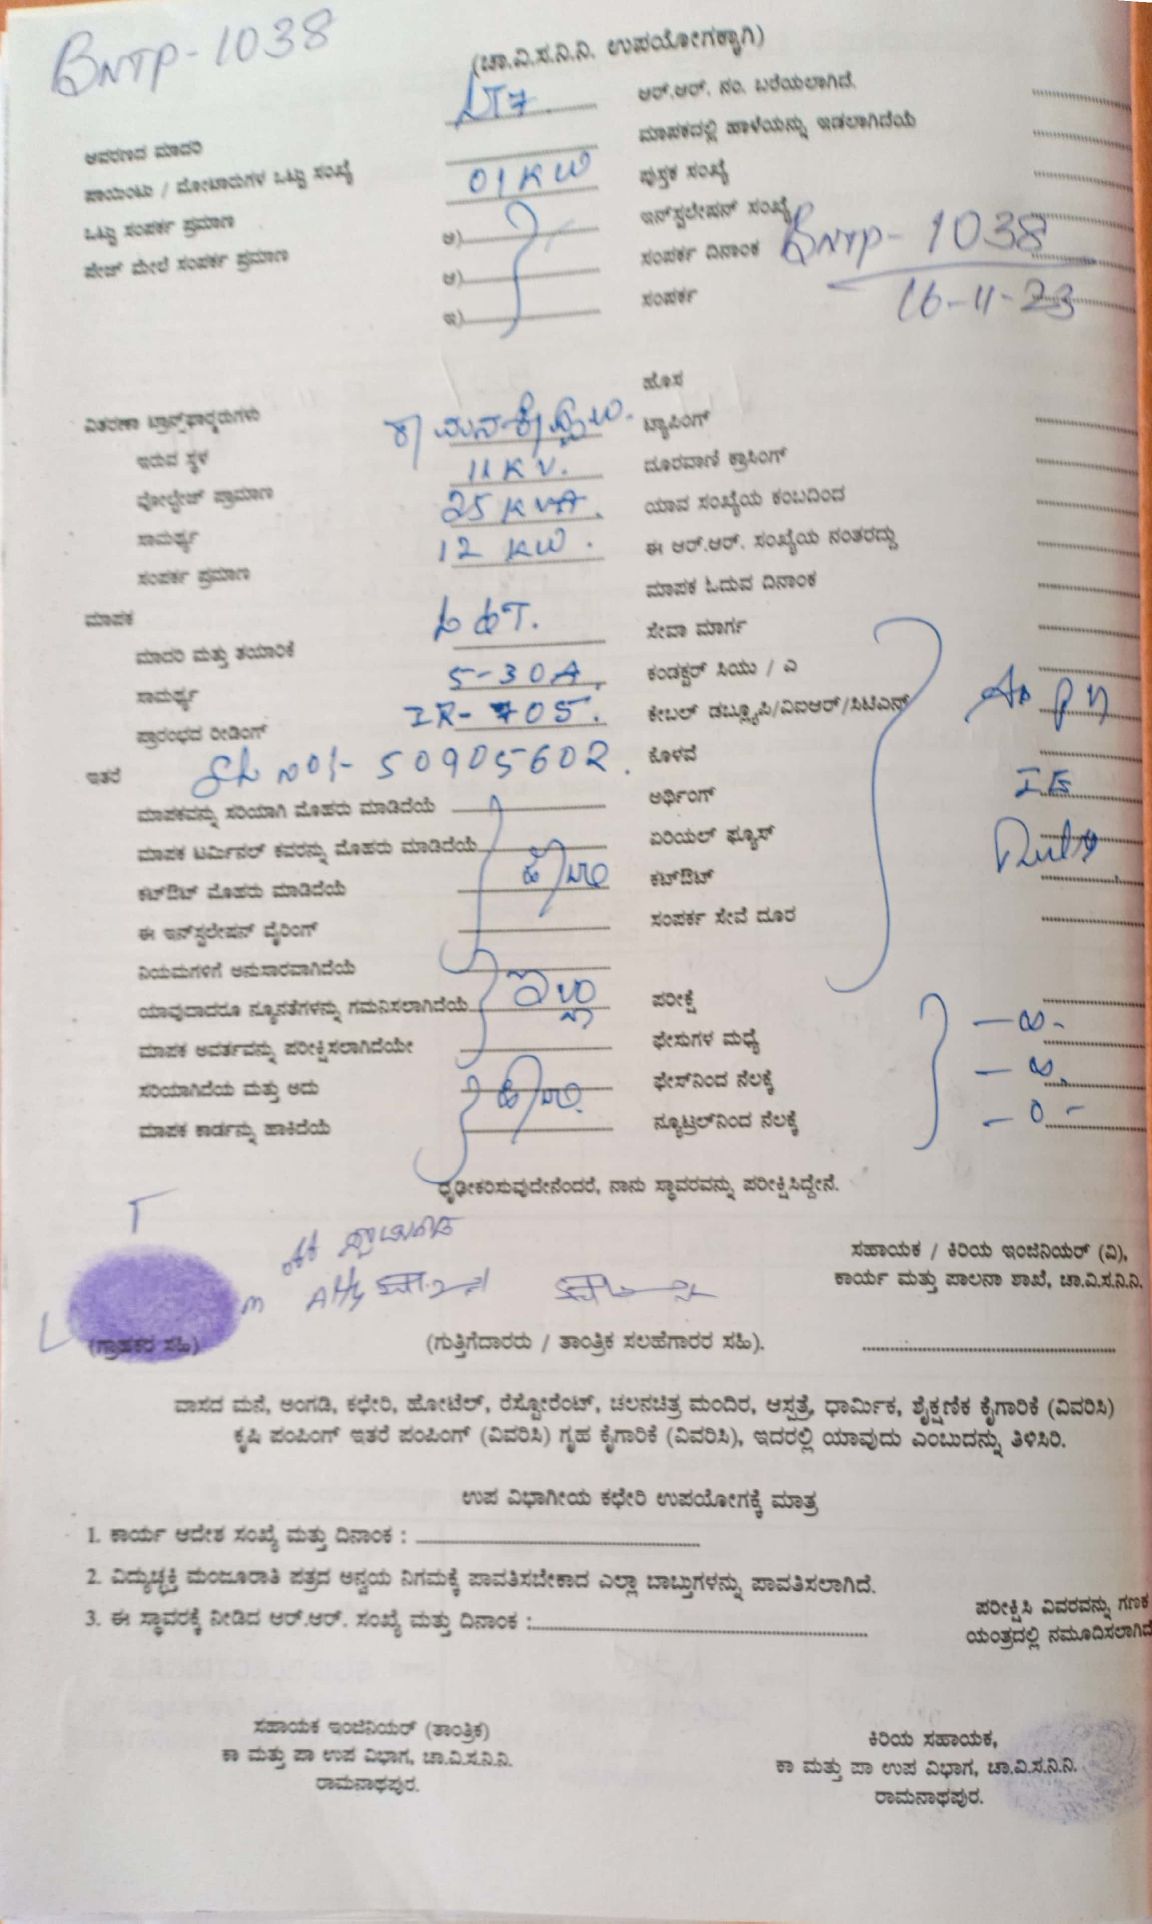 BNTP-1038
(ಚಾ.ವಿ.ಸ.ನಿ.ನಿ. ಉಪಯೋಗಕ್ಕಾಗಿ)
LT7 ಆರ್.ಆರ್. ನಂ. ಬರೆಯಲಾಗಿದೆ.
ಆವರಣದ ಮಾದರಿ ಮಾಪಕದಲ್ಲಿ ಹಾಳೆಯನ್ನು ಇಡಲಾಗಿದೆಯೆ
ಪಾಯಿಂಟು / ಮೋಟಾರುಗಳ ಒಟ್ಟು ಸಂಖ್ಯೆ 01 KW ಪುಸ್ತಕ ಸಂಖ್ಯೆ
ಒಟ್ಟು ಸಂಪರ್ಕ ಪ್ರಮಾಣ ಅ) ಇನ್‌ಸ್ಟಲೇಷನ್ ಸಂಖ್ಯೆ BNTP-1038
ಪೇಜ್ ಮೇಲೆ ಸಂಪರ್ಕ ಪ್ರಮಾಣ ಆ) ಸಂಪರ್ಕ ದಿನಾಂಕ 16-11-23
ಇ) ಸಂಪರ್ಕ
ಹೊಸ
ವಿತರಣಾ ಟ್ರಾನ್ಸ್‌ಫಾರ್ಮರುಗಳು ಟ್ಯಾಪಿಂಗ್
ಇರುವ ಸ್ಥಳ 11 KV. ದೂರವಾಣಿ ಕ್ರಾಸಿಂಗ್
ವೋಲ್ಟೇಜ್ ಪ್ರಾಮಾಣ 25 KVA. ಯಾವ ಸಂಖ್ಯೆಯ ಕಂಬದಿಂದ
ಸಾಮರ್ಥ್ಯ 12 KW. ಈ ಆರ್.ಆರ್. ಸಂಖ್ಯೆಯ ನಂತರದ್ದು
ಸಂಪರ್ಕ ಪ್ರಮಾಣ ಮಾಪಕ ಓದುವ ದಿನಾಂಕ
ಮಾಪಕ L&T. ಸೇವಾ ಮಾರ್ಗ
ಮಾದರಿ ಮತ್ತು ತಯಾರಿಕೆ 5-30A. ಕಂಡಕ್ಟರ್ ಸಿಯು / ಎ
ಸಾಮರ್ಥ್ಯ IR-705. ಕೇಬಲ್ ಡಬ್ಲ್ಯೂಪಿ/ವಿಐಆರ್/ಸಿಟಿಎಸ್
ಪ್ರಾರಂಭದ ರೀಡಿಂಗ್
ಇತರೆ SL NO:- 50905602. ಕೊಳವೆ
ಮಾಪಕವನ್ನು ಸರಿಯಾಗಿ ಮೊಹರು ಮಾಡಿದೆಯೆ ಅರ್ಥಿಂಗ್
ಮಾಪಕ ಟರ್ಮಿನಲ್ ಕವರನ್ನು ಮೊಹರು ಮಾಡಿದೆಯೆ ಏರಿಯಲ್ ಫ್ಯೂಸ್
ಕಟ್‌ಔಟ್ ಮೊಹರು ಮಾಡಿದೆಯೆ ಕಟ್‌ಔಟ್
ಈ ಇನ್‌ಸ್ಟಲೇಷನ್ ವೈರಿಂಗ್ ಸಂಪರ್ಕ ಸೇವೆ ದೂರ
ನಿಯಮಗಳಿಗೆ ಅನುಸಾರವಾಗಿದೆಯೆ
ಯಾವುದಾದರೂ ನ್ಯೂನತೆಗಳನ್ನು ಗಮನಿಸಲಾಗಿದೆಯೆ ಇಲ್ಲ ಪರೀಕ್ಷೆ
ಮಾಪಕ ಆವರ್ತವನ್ನು ಪರೀಕ್ಷಿಸಲಾಗಿದೆಯೇ ಫೇಸುಗಳ ಮಧ್ಯೆ - ∞ -
ಸರಿಯಾಗಿದೆಯ ಮತ್ತು ಅದು ಫೇಸ್‌ನಿಂದ ನೆಲಕ್ಕೆ - ∞.
ಮಾಪಕ ಕಾರ್ಡನ್ನು ಹಾಕಿದೆಯೆ ನ್ಯೂಟ್ರಲ್‌ನಿಂದ ನೆಲಕ್ಕೆ - 0 -
ಧೃಢೀಕರಿಸುವುದೇನೆಂದರೆ, ನಾನು ಸ್ಥಾವರವನ್ನು ಪರೀಕ್ಷಿಸಿದ್ದೇನೆ.
ಸಹಾಯಕ / ಕಿರಿಯ ಇಂಜಿನಿಯರ್ (ವಿ),
ಕಾರ್ಯ ಮತ್ತು ಪಾಲನಾ ಶಾಖೆ, ಚಾ.ವಿ.ಸ.ನಿ.ನಿ.
(ಗ್ರಾಹಕರ ಸಹಿ) (ಗುತ್ತಿಗೆದಾರರು / ತಾಂತ್ರಿಕ ಸಲಹೆಗಾರರ ಸಹಿ).
ವಾಸದ ಮನೆ, ಅಂಗಡಿ, ಕಛೇರಿ, ಹೋಟೆಲ್, ರೆಸ್ಟೋರೆಂಟ್, ಚಲನಚಿತ್ರ ಮಂದಿರ, ಆಸ್ಪತ್ರೆ, ಧಾರ್ಮಿಕ, ಶೈಕ್ಷಣಿಕ ಕೈಗಾರಿಕೆ (ವಿವರಿಸಿ)
ಕೃಷಿ ಪಂಪಿಂಗ್ ಇತರೆ ಪಂಪಿಂಗ್ (ವಿವರಿಸಿ) ಗೃಹ ಕೈಗಾರಿಕೆ (ವಿವರಿಸಿ), ಇದರಲ್ಲಿ ಯಾವುದು ಎಂಬುದನ್ನು ತಿಳಿಸಿರಿ.
ಉಪ ವಿಭಾಗೀಯ ಕಛೇರಿ ಉಪಯೋಗಕ್ಕೆ ಮಾತ್ರ
1. ಕಾರ್ಯ ಆದೇಶ ಸಂಖ್ಯೆ ಮತ್ತು ದಿನಾಂಕ :
2. ವಿದ್ಯುಚ್ಛಕ್ತಿ ಮಂಜೂರಾತಿ ಪತ್ರದ ಅನ್ವಯ ನಿಗಮಕ್ಕೆ ಪಾವತಿಸಬೇಕಾದ ಎಲ್ಲಾ ಬಾಬ್ತುಗಳನ್ನು ಪಾವತಿಸಲಾಗಿದೆ.
3. ಈ ಸ್ಥಾವರಕ್ಕೆ ನೀಡಿದ ಆರ್.ಆರ್. ಸಂಖ್ಯೆ ಮತ್ತು ದಿನಾಂಕ :
ಪರೀಕ್ಷಿಸಿ ವಿವರವನ್ನು ಗಣಕ
ಯಂತ್ರದಲ್ಲಿ ನಮೂದಿಸಲಾಗಿದೆ
ಸಹಾಯಕ ಇಂಜಿನಿಯರ್ (ತಾಂತ್ರಿಕ) ಕಿರಿಯ ಸಹಾಯಕ,
ಕಾ ಮತ್ತು ಪಾ ಉಪ ವಿಭಾಗ, ಚಾ.ವಿ.ಸ.ನಿ.ನಿ. ಕಾ ಮತ್ತು ಪಾ ಉಪ ವಿಭಾಗ, ಚಾ.ವಿ.ಸ.ನಿ.ನಿ.
ರಾಮನಾಥಪುರ. ರಾಮನಾಥಪುರ.